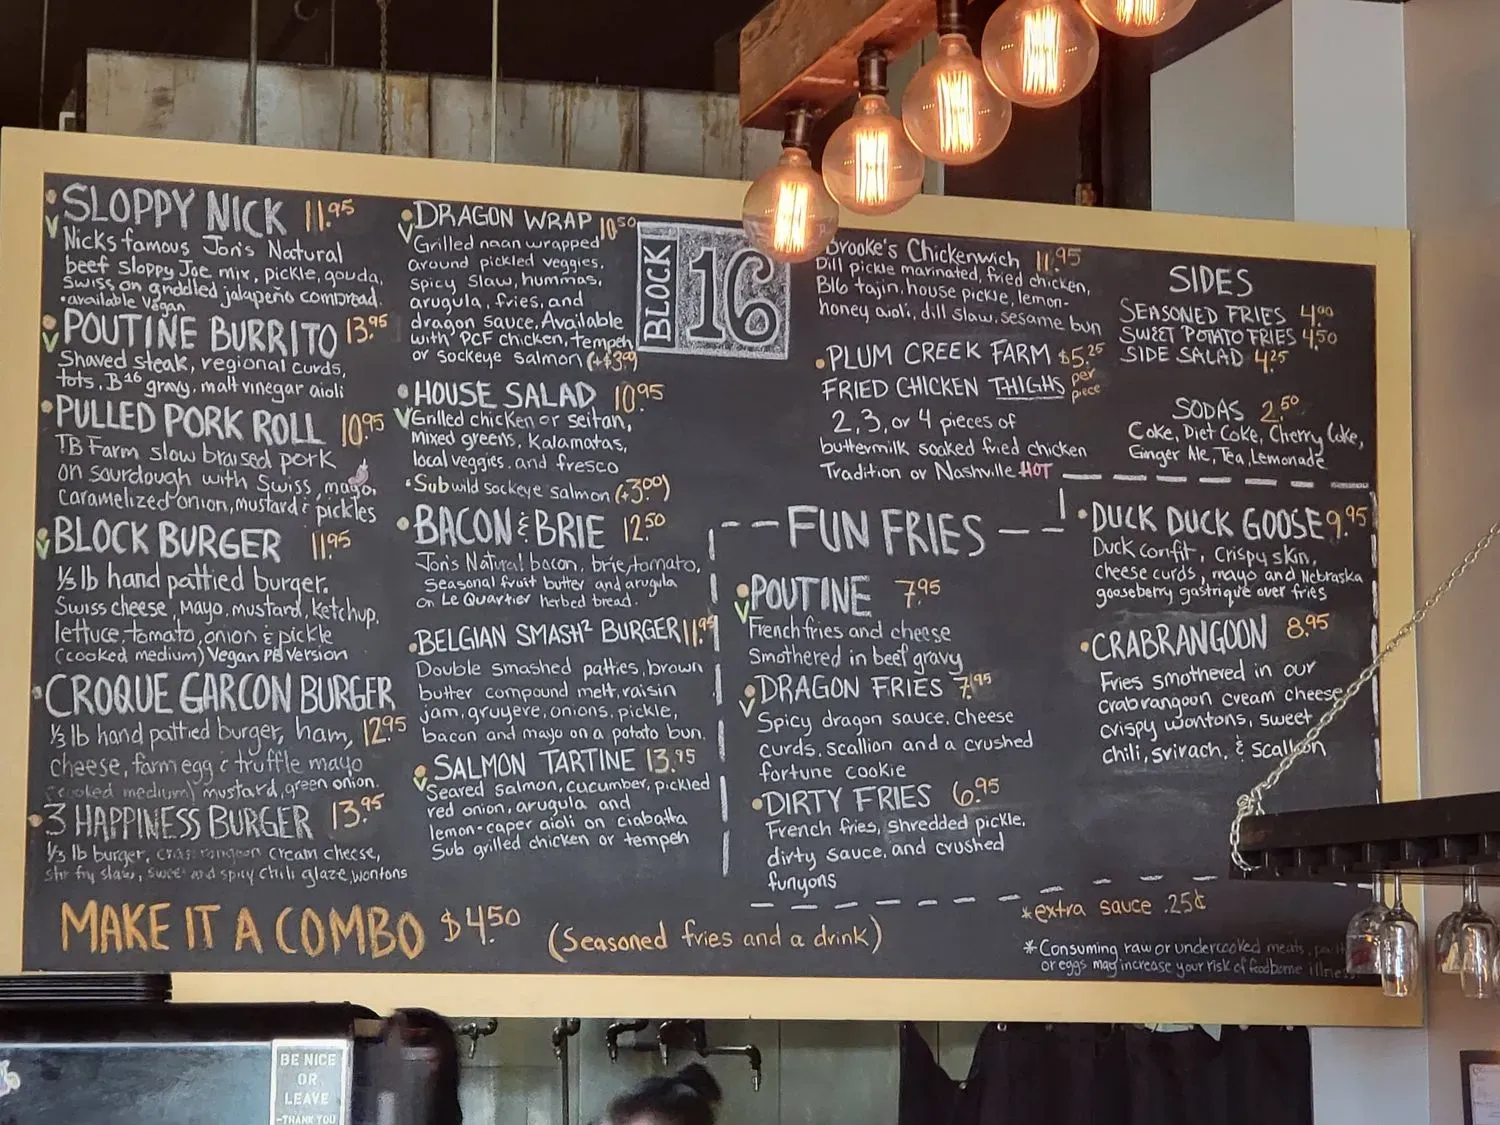 SLOPPY NICK 11.95
V Nicks famous Jon's Natural
beef Sloppy Joe mix, pickle, gouda,
Swiss on griddled jalapeño cornbread.
•available vegan
POUTINE BURRITO 13.95
V Shaved steak, regional curds,
tots, B16 gravy, malt vinegar aioli
PULLED PORK ROLL 10.95
TB Farm slow braised pork
on sourdough with Swiss, mayo,
caramelized onion, mustard & pickles
V BLOCK BURGER 11.95
1/3 lb hand pattied burger.
Swiss cheese, Mayo, mustard, Ketchup,
lettuce, tomato, onion & pickle
(cooked medium) Vegan PB version
CROQUE GARCON BURGER
1/3 lb hand pattied burger, ham, 12.95
cheese, farm egg & truffle mayo
(cooked medium) mustard, green onion.
3 HAPPINESS BURGER 13.95
1/3 lb burger, crab rangoon cream cheese,
stir fry slaw, sweet and spicy chili glaze, wontons
DRAGON WRAP 10.50
V Grilled naan wrapped
around pickled veggies,
spicy slaw, hummas,
arugula, fries, and
dragon sauce. Available
with PCF chicken, tempeh
or sockeye salmon (+$3.00)
HOUSE SALAD 10.95
V Grilled chicken or seitan,
mixed greens, Kalamatas,
local veggies, and fresco
•Sub wild sockeye salmon (+3.00)
BACON & BRIE 12.50
Jon's Natural bacon, brie, tomato,
Seasonal fruit butter and arugula
on Le Quartier herbed bread.
BELGIAN SMASH2 BURGER 11.95
Double smashed patties, brown
butter compound melt, raisin
jam, gruyere, onions, pickle,
bacon and mayo on a potato bun.
SALMON TARTINE 13.95
V Seared salmon, cucumber, pickled
red onion, arugula and
lemon-caper aioli on ciabatta
Sub grilled chicken or tempeh
BLOCK 16
Brooke's Chickenwich 11.95
Dill pickle marinated, fried chicken,
B16 tajin, house pickle, lemon-
honey aioli, dill slaw, sesame bun
PLUM CREEK FARM $5.25
FRIED CHICKEN THIGHS per piece
2, 3, or 4 pieces of
buttermilk soaked fried chicken
Tradition or Nashville HOT
SIDES
SEASONED FRIES 4.00
SWEET POTATO FRIES 4.50
SIDE SALAD 4.25
SODAS 2.50
Coke, Diet Coke, Cherry Coke,
Ginger Ale, Tea, Lemonade
FUN FRIES
POUTINE 7.95
V French fries and cheese
Smothered in beef gravy
DRAGON FRIES 7.95
V Spicy dragon sauce, cheese
curds, scallion and a crushed
fortune cookie
DIRTY FRIES 6.95
French fries, shredded pickle,
dirty sauce, and crushed
funyons
DUCK DUCK GOOSE 9.95
Duck confit, crispy skin,
cheese curds, mayo and Nebraska
gooseberry gastrique over fries
CRABRANGOON 8.95
Fries smothered in our
crabrangoon cream cheese
crispy wontons, sweet
chili, srirach, & scallion
MAKE IT A COMBO $4.50 (Seasoned fries and a drink)
*extra sauce .25¢
*Consuming raw or undercooked meats,
or eggs may increase your risk of foodborne illness
BE NICE
OR
LEAVE
-THANK YOU